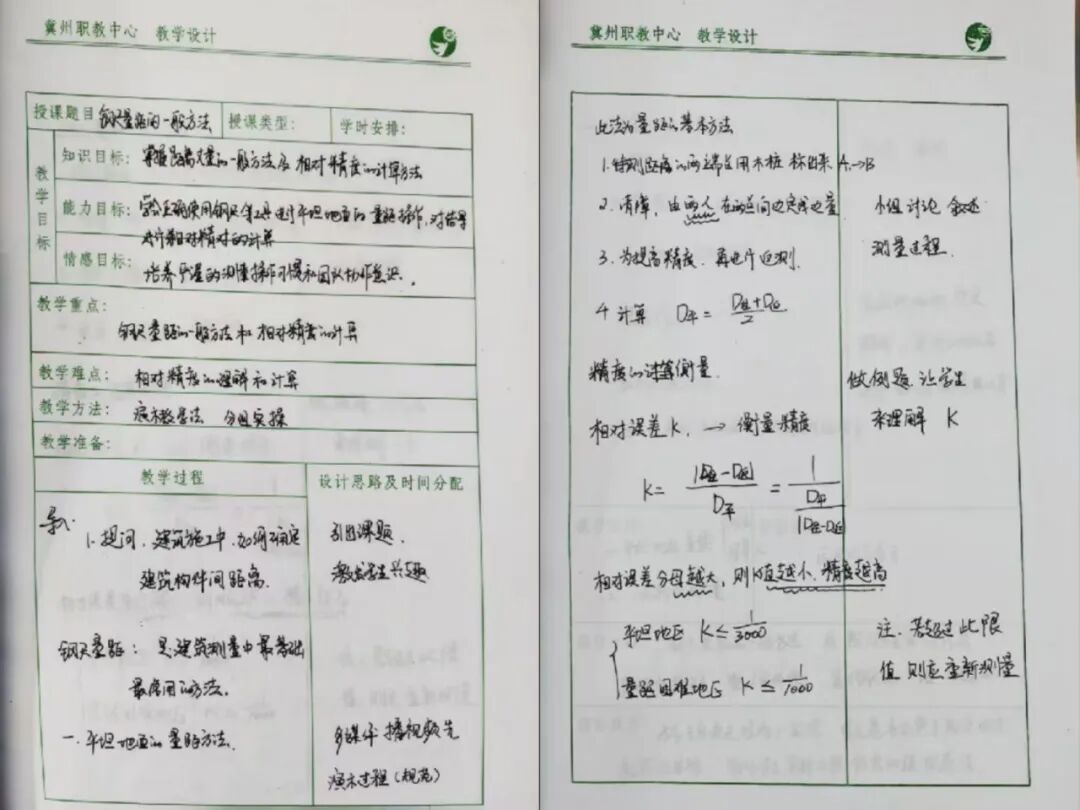 冀州职教中心 教学设计
授课题目 钢尺量距的一般方法 授课类型: 学时安排:
教学目标
知识目标: 掌握距离丈量的一般方法及相对精度的计算方法
能力目标: 学会正确使用钢尺等工具进行平坦地面的量距操作,对结果
进行相对精对的计算
情感目标: 培养严谨的测量操作习惯和团队协作意识.
教学重点:
钢尺量距的一般方法和相对精度的计算
教学难点: 相对精度的理解和计算
教学方法: 演示教学法 分组实操
教学准备:
教学过程 设计思路及时间分配
导入:
1. 提问, 建筑施工中,如何确定 引出课题.
建筑构件间距离. 激发学生兴趣
钢尺量距: 是建筑测量中最基础
最常用的方法.
一. 平坦地面的量距方法. 多媒体播视频先
演示过程(规范)
冀州职教中心 教学设计
此法为量距的基本方法
1. 待测距离的两端点用木桩标出来 A→B
2. 清障, 由两人在两点间边定线边量 小组讨论 叙述
测量过程.
3. 为提高精度. 再进行返测.
4 计算 D平 = (D往+D返)/2
精度的计算衡量. 做例题.让学生
相对误差K, → 衡量精度 来理解 K
K = |D往-D返|/D平 = 1/(D平/|D往-D返|)
相对误差分母越大, 则K值越小.精度越高
平坦地区 K ≤ 1/3000 注: 若超过此限
量距困难地区 K ≤ 1/1000 值 则应重新测量